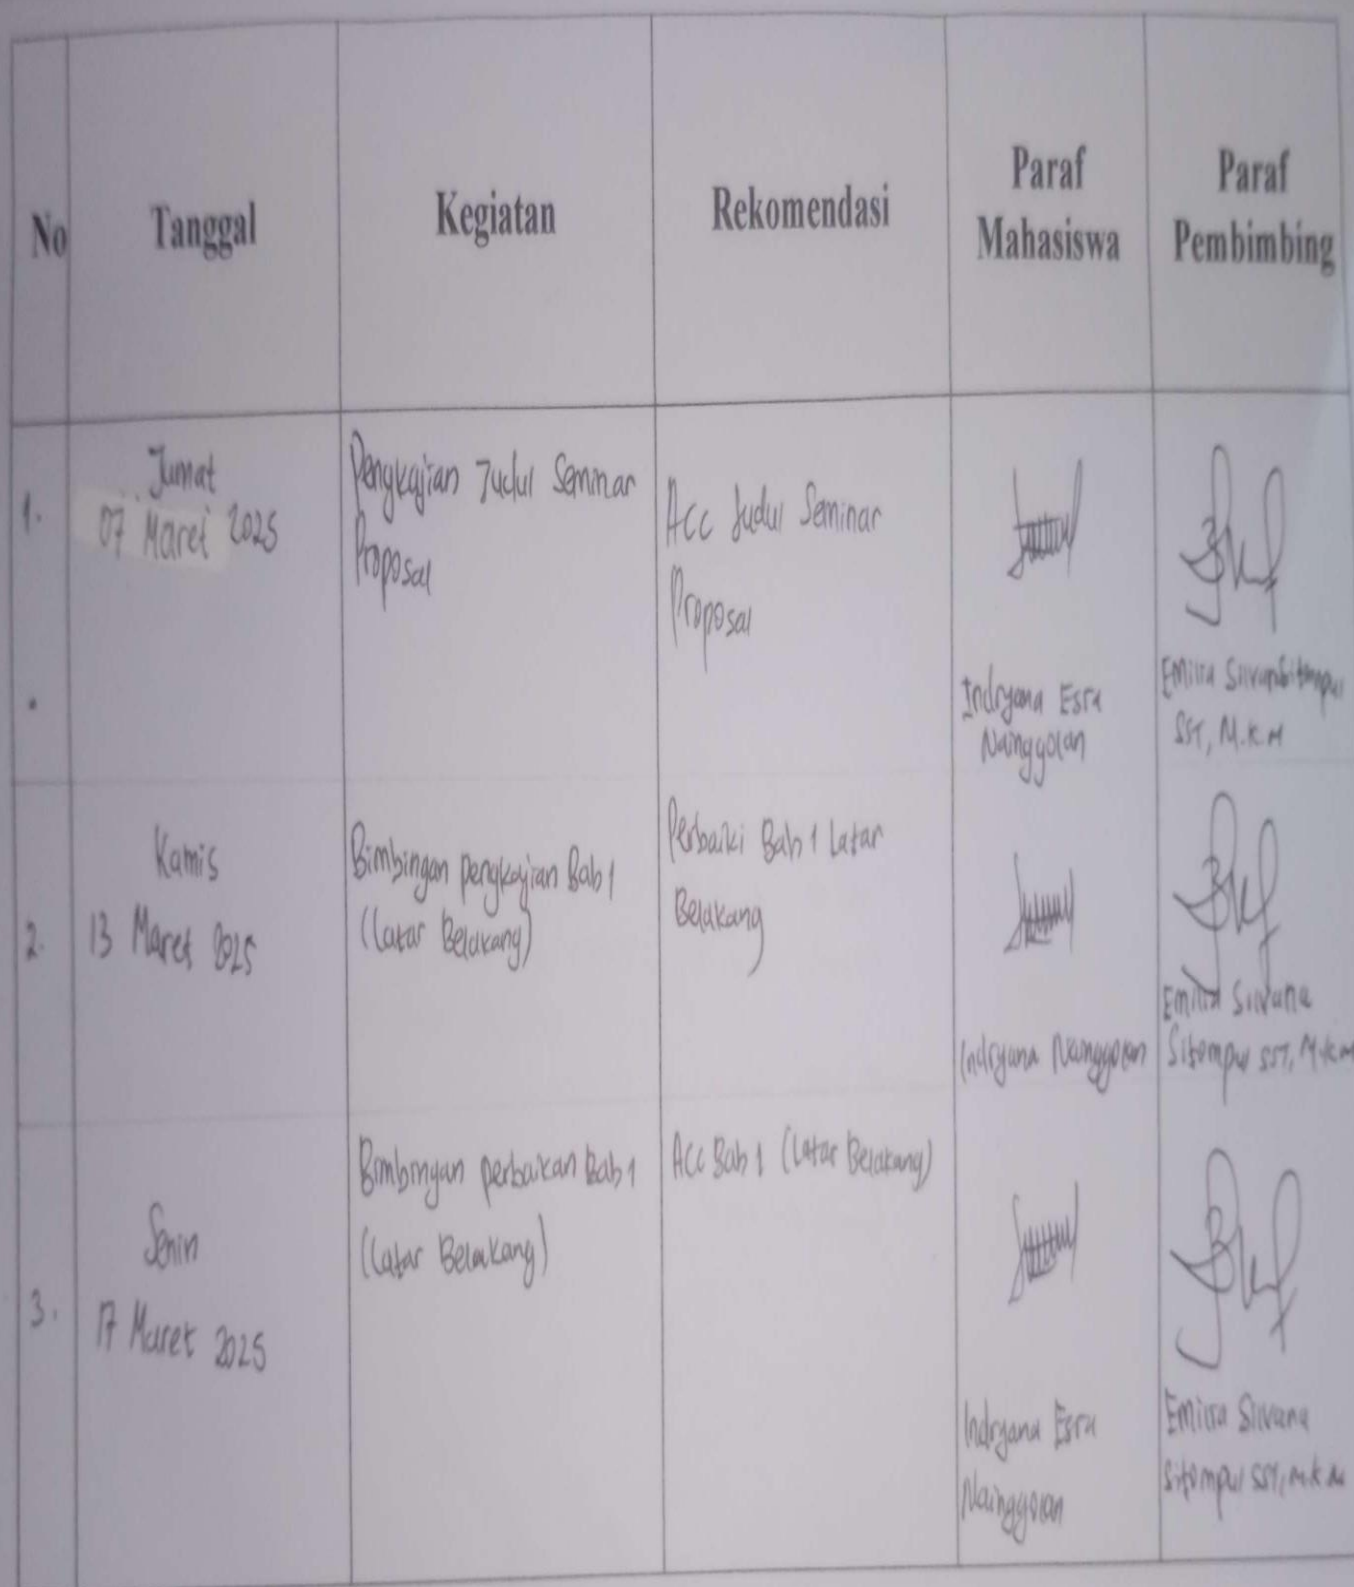 No
Tanggal
Kegiatan
Rekomendasi
Paraf
Mahasiswa
Paraf
Pembimbing
1.
Jumat
07 Maret 2025
Pengkajian Judul Seminar
Proposal
Acc Judul Seminar
Proposal
Indryana Esra
Nainggolan
Emilia Silvana Sitompul
SST, M.K.M
2.
Kamis
13 Maret 2025
Bimbingan pengkajian Bab 1
(Latar Belakang)
Perbaiki Bab 1 Latar
Belakang
Indryana Nainggolan
Emilia Silvana
Sitompul SST, M.K.M
3.
Senin
17 Maret 2025
Bimbingan perbaikan Bab 1
(Latar Belakang)
Acc Bab 1 (Latar Belakang)
Indryana Esra
Nainggolan
Emilia Silvana
Sitompul SST, M.K.M